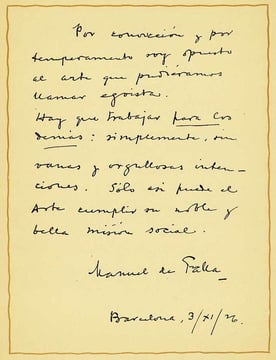 Por convicción y por
temperamento soy opuesto
al arte que pudiéramos
llamar egoista.
Hay que trabajar para los
demás: simplemente, sin
vanas y orgullosas inten-
ciones. Sólo asi puede el
Arte cumplir su noble y
bella misión social.
Manuel de Falla
Barcelona, 3/XI/26.